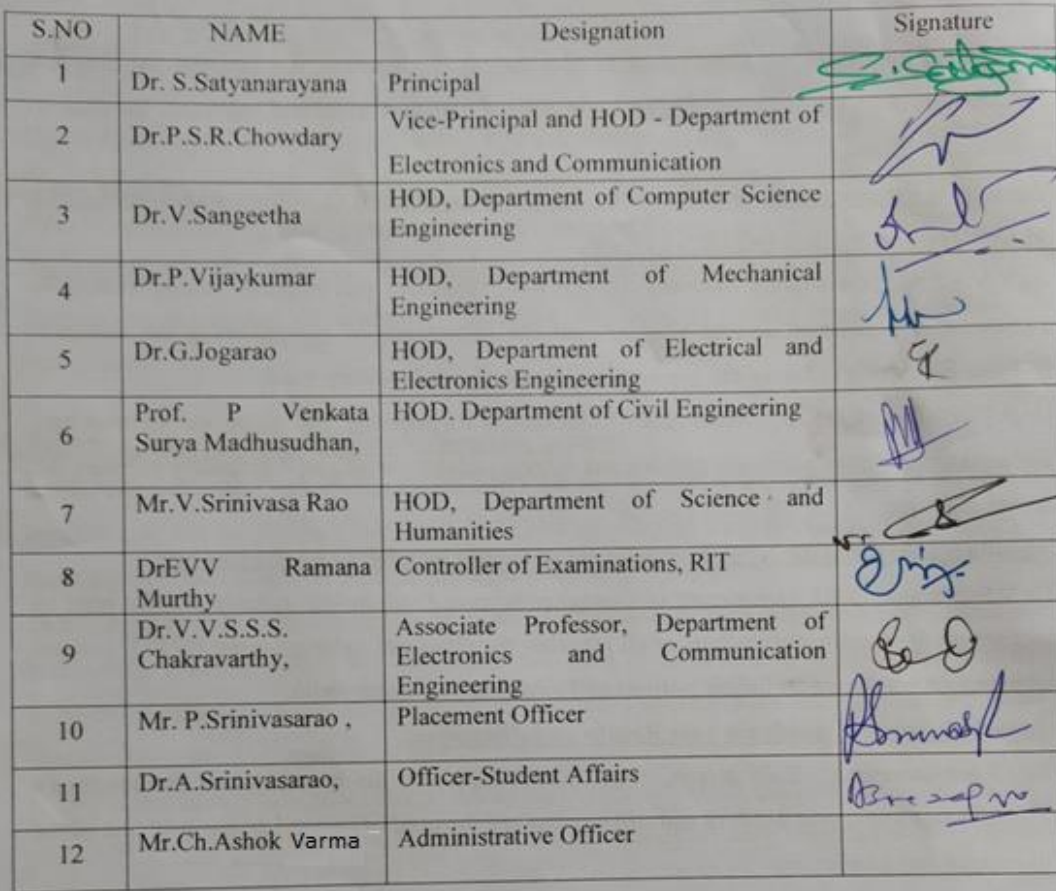 S.NO NAME Designation Signature
1 Dr. S.Satyanarayana Principal
2 Dr.P.S.R.Chowdary Vice-Principal and HOD - Department of
Electronics and Communication
3 Dr.V.Sangeetha HOD, Department of Computer Science
Engineering
4 Dr.P.Vijaykumar HOD, Department of Mechanical
Engineering
5 Dr.G.Jogarao HOD, Department of Electrical and
Electronics Engineering
6 Prof. P Venkata HOD. Department of Civil Engineering
Surya Madhusudhan,
7 Mr.V.Srinivasa Rao HOD, Department of Science and
Humanities
8 DrEVV Ramana Controller of Examinations, RIT
Murthy
9 Dr.V.V.S.S.S. Associate Professor, Department of
Chakravarthy, Electronics and Communication
Engineering
10 Mr. P.Srinivasarao , Placement Officer
11 Dr.A.Srinivasarao, Officer-Student Affairs
12 Mr.Ch.Ashok Varma Administrative Officer